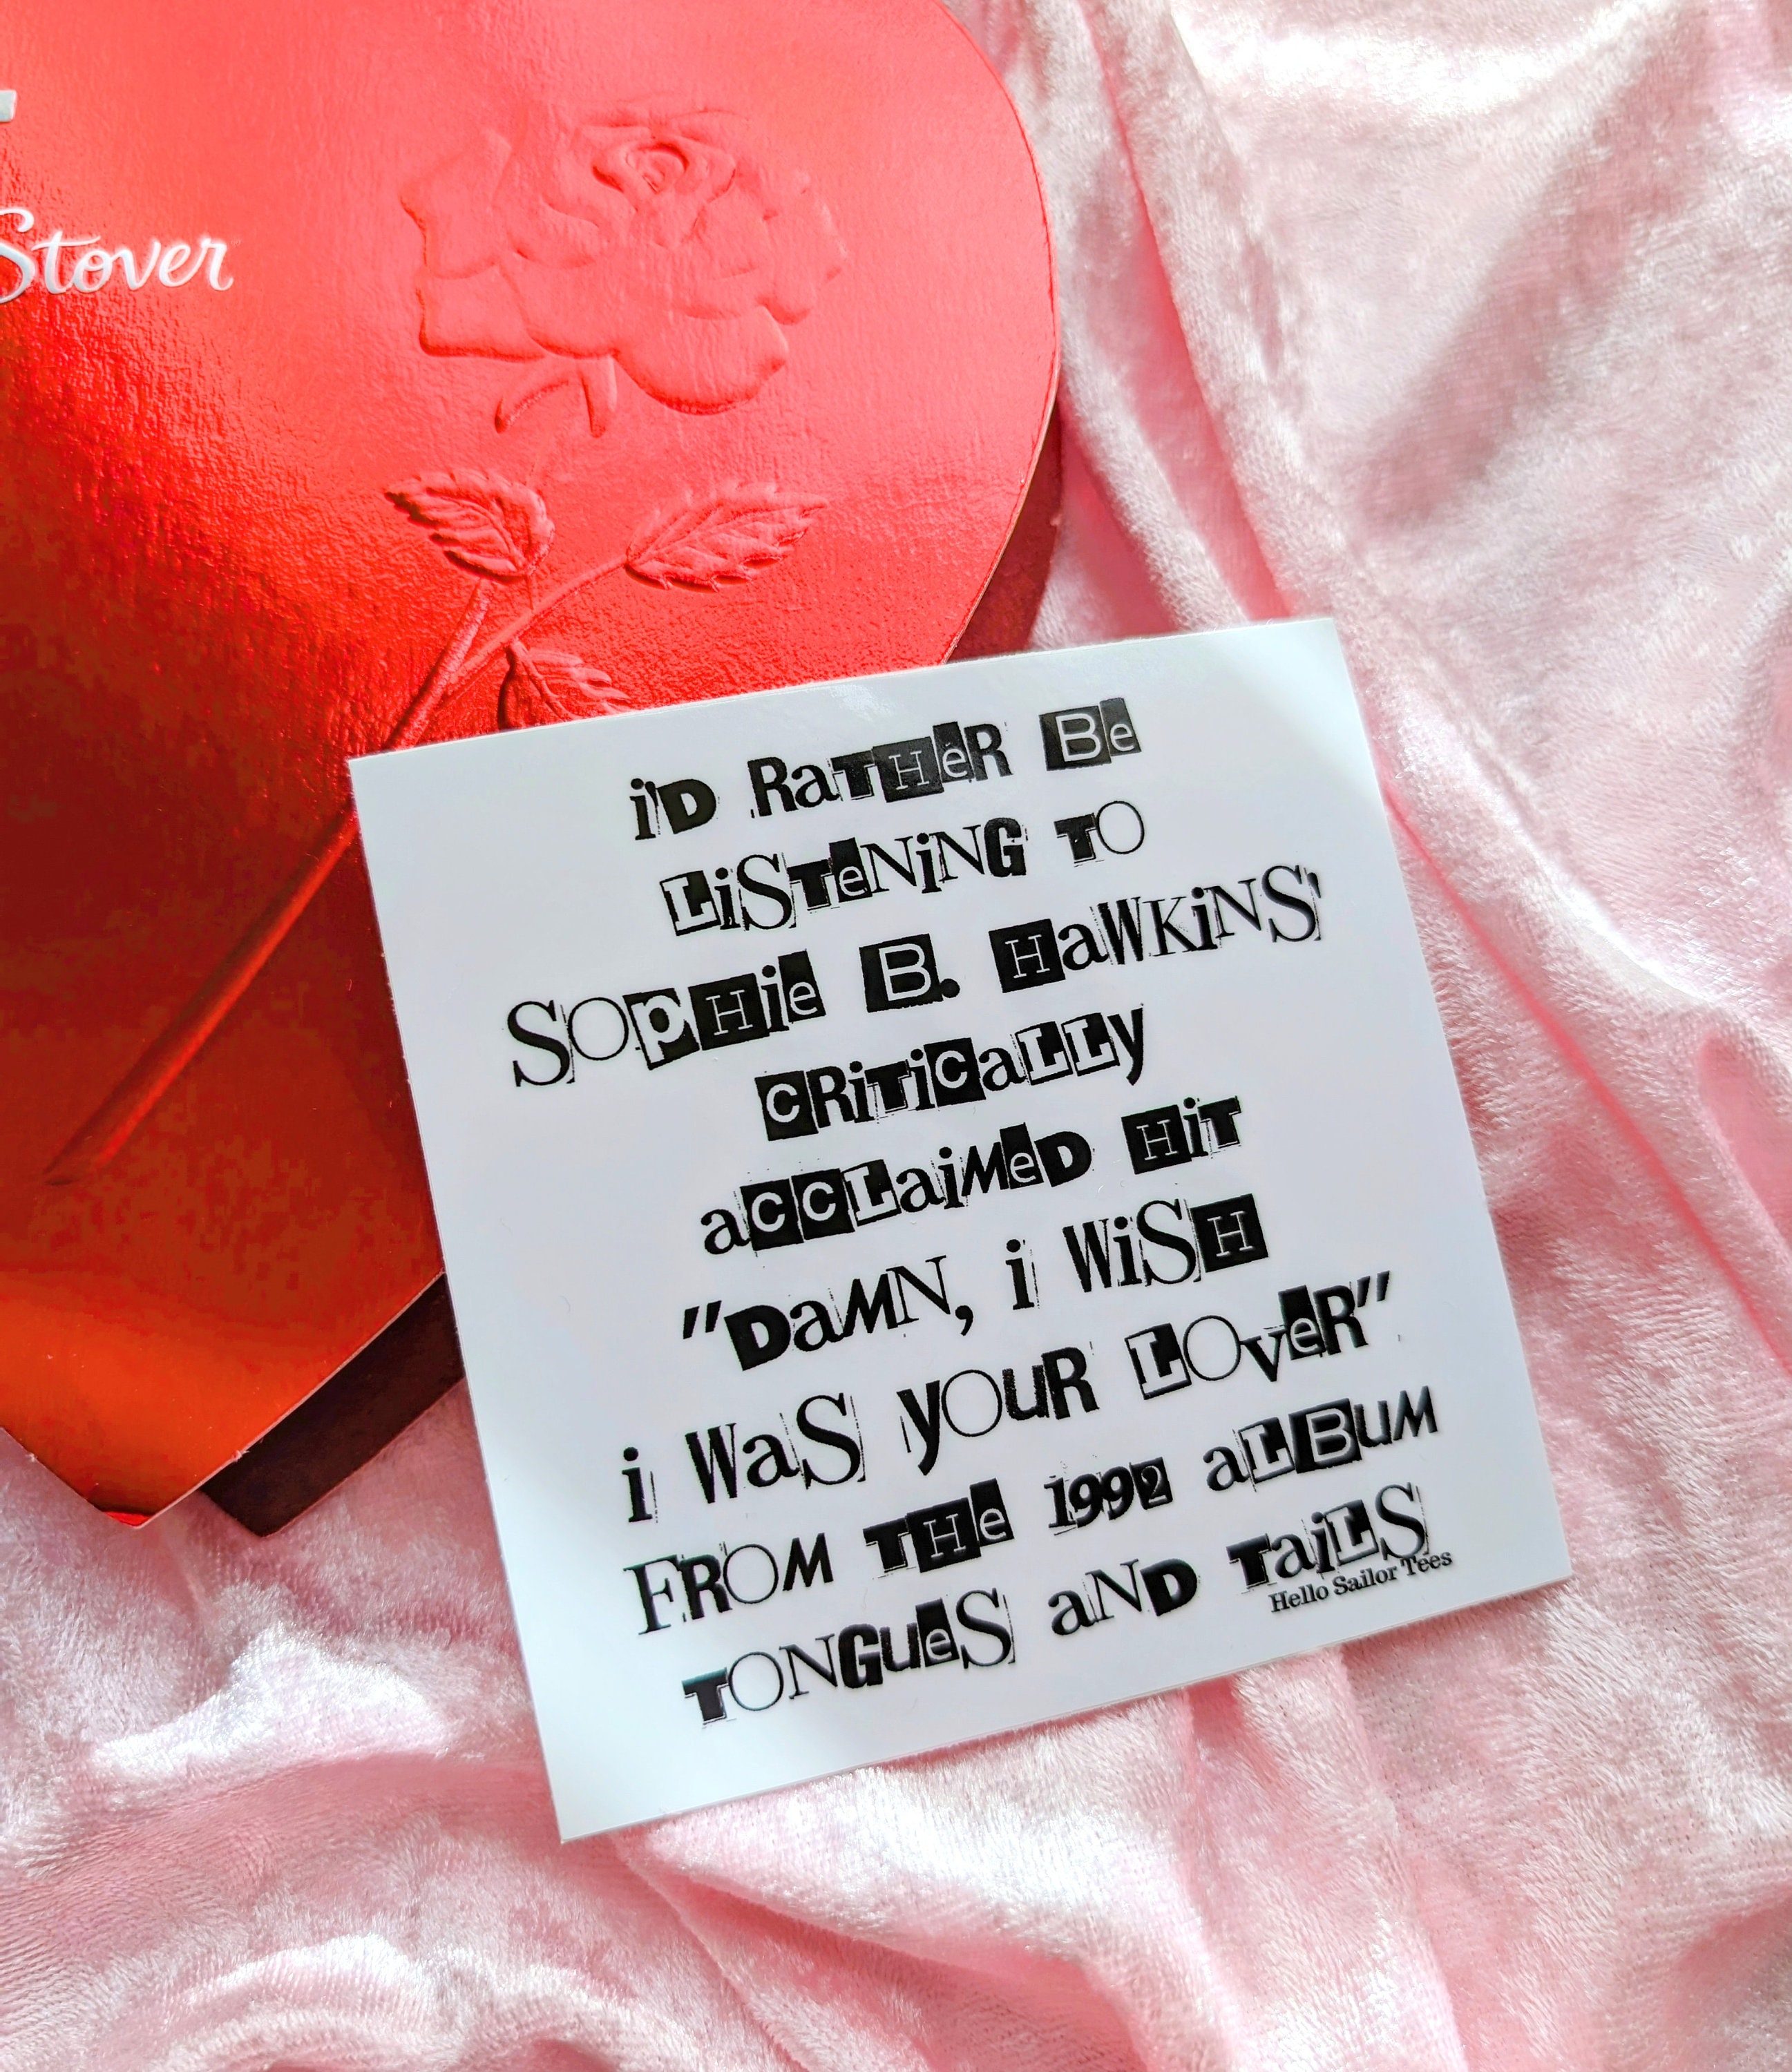 Stover
i'D RaTHeR Be
LiSTeNiNG TO
SOpHie B. HaWKiNS'
CRiTiCaLLy
aCCLaiMeD HiT
"DaMN, i WiSH
i WaS yOuR LOveR"
FROM THe 1992 aLBuM
TONGueS aND TaiLS
Hello Sailor Tees